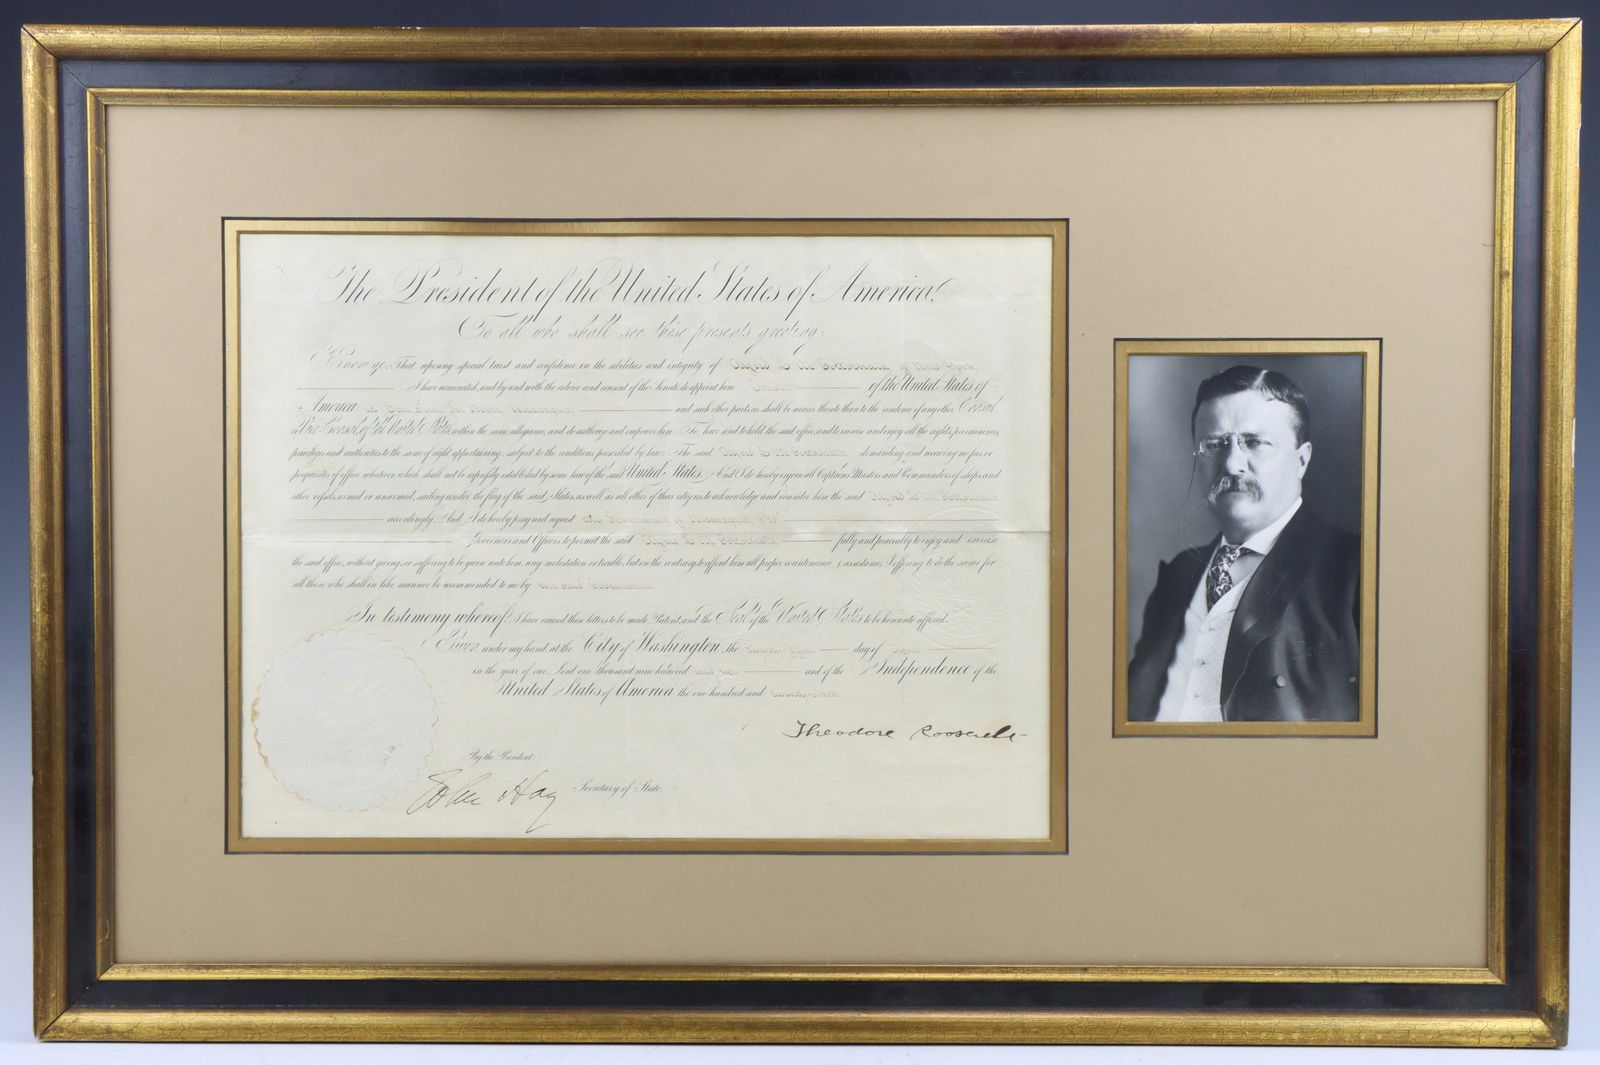 The President of the United States of America.
To all who shall see these presents greeting:
Know ye, That reposing special trust and confidence in the abilities and integrity of of New York,
I have nominated, and by and with the advice and consent of the Senate do appoint him Consul of the United States of
America at San Juan del Norte Nicaragua and such other parts as shall be nearer thereto than to the residence of any other Consul
or Vice-Consul of the United States, within the same allegiance; and do authorize and empower him To have and to hold the said office, and to exercise and enjoy all the rights, preeminences,
privileges and authorities to the same of right appertaining; subject to the conditions prescribed by law: The said demanding and receiving no fees or
perquisites of office whatever, which shall not be expressly established by some law of the said United States. And I do hereby enjoin all Captains, Masters and Commanders of ships and
other vessels, armed or unarmed, sailing under the flag of the said States, as well as all other of their citizens to acknowledge and consider him the said
accordingly. And I do hereby pray and request the Government of Nicaragua, its
Governors and Officers to permit the said fully and peaceably to enjoy and exercise
the said office, without giving, or suffering to be given unto him, any molestation or trouble, but on the contrary, to afford him all proper countenance & assistance; I offering to do the same for
all those who shall in like manner be recommended to me by the said Government
In testimony whereof, I have caused these letters to be made Patent, and the Seal of the United States to be hereunto affixed.
Given under my hand, at the City of Washington, the day of
in the year of our Lord one thousand nine hundred and and of the Independence of the
United States of America, the one hundred and
Theodore Roosevelt
By the President:
John Hay Secretary of State.